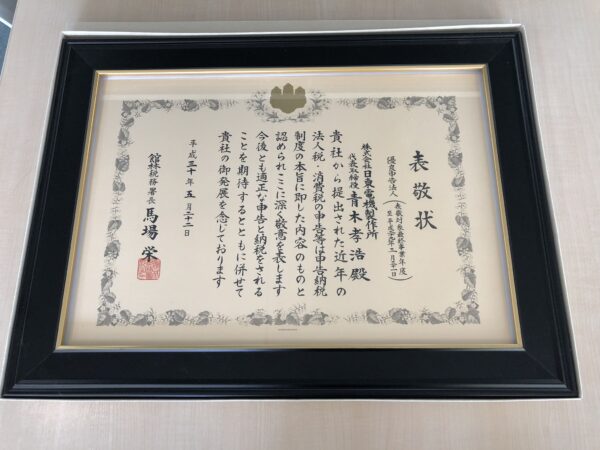 表敬状
優良申告法人
表敬対象最終事業年度
株式会社日東電機製作所
代表取締役 青木孝浩殿
貴社から提出された近年の
法人税・消費税の申告等は申告納税
制度の本旨に即した内容のものと
認められここに深く敬意を表します
今後とも適正な申告と納税をされる
ことを期待するとともに併せて
貴社の御発展を念じております
平成三十年五月二十二日
館林税務署長 馬場栄